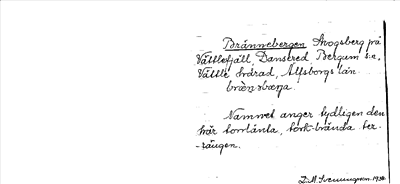 Brännebergen Skogsberg på
Vättlefjäll, Dansered Bergum s:n,
Vättle härad, Älfsborgs län
Namnet anger tydligen den
här torrlänta, tork-brända ter-
rängen.
D. M. Svenningson. 1930